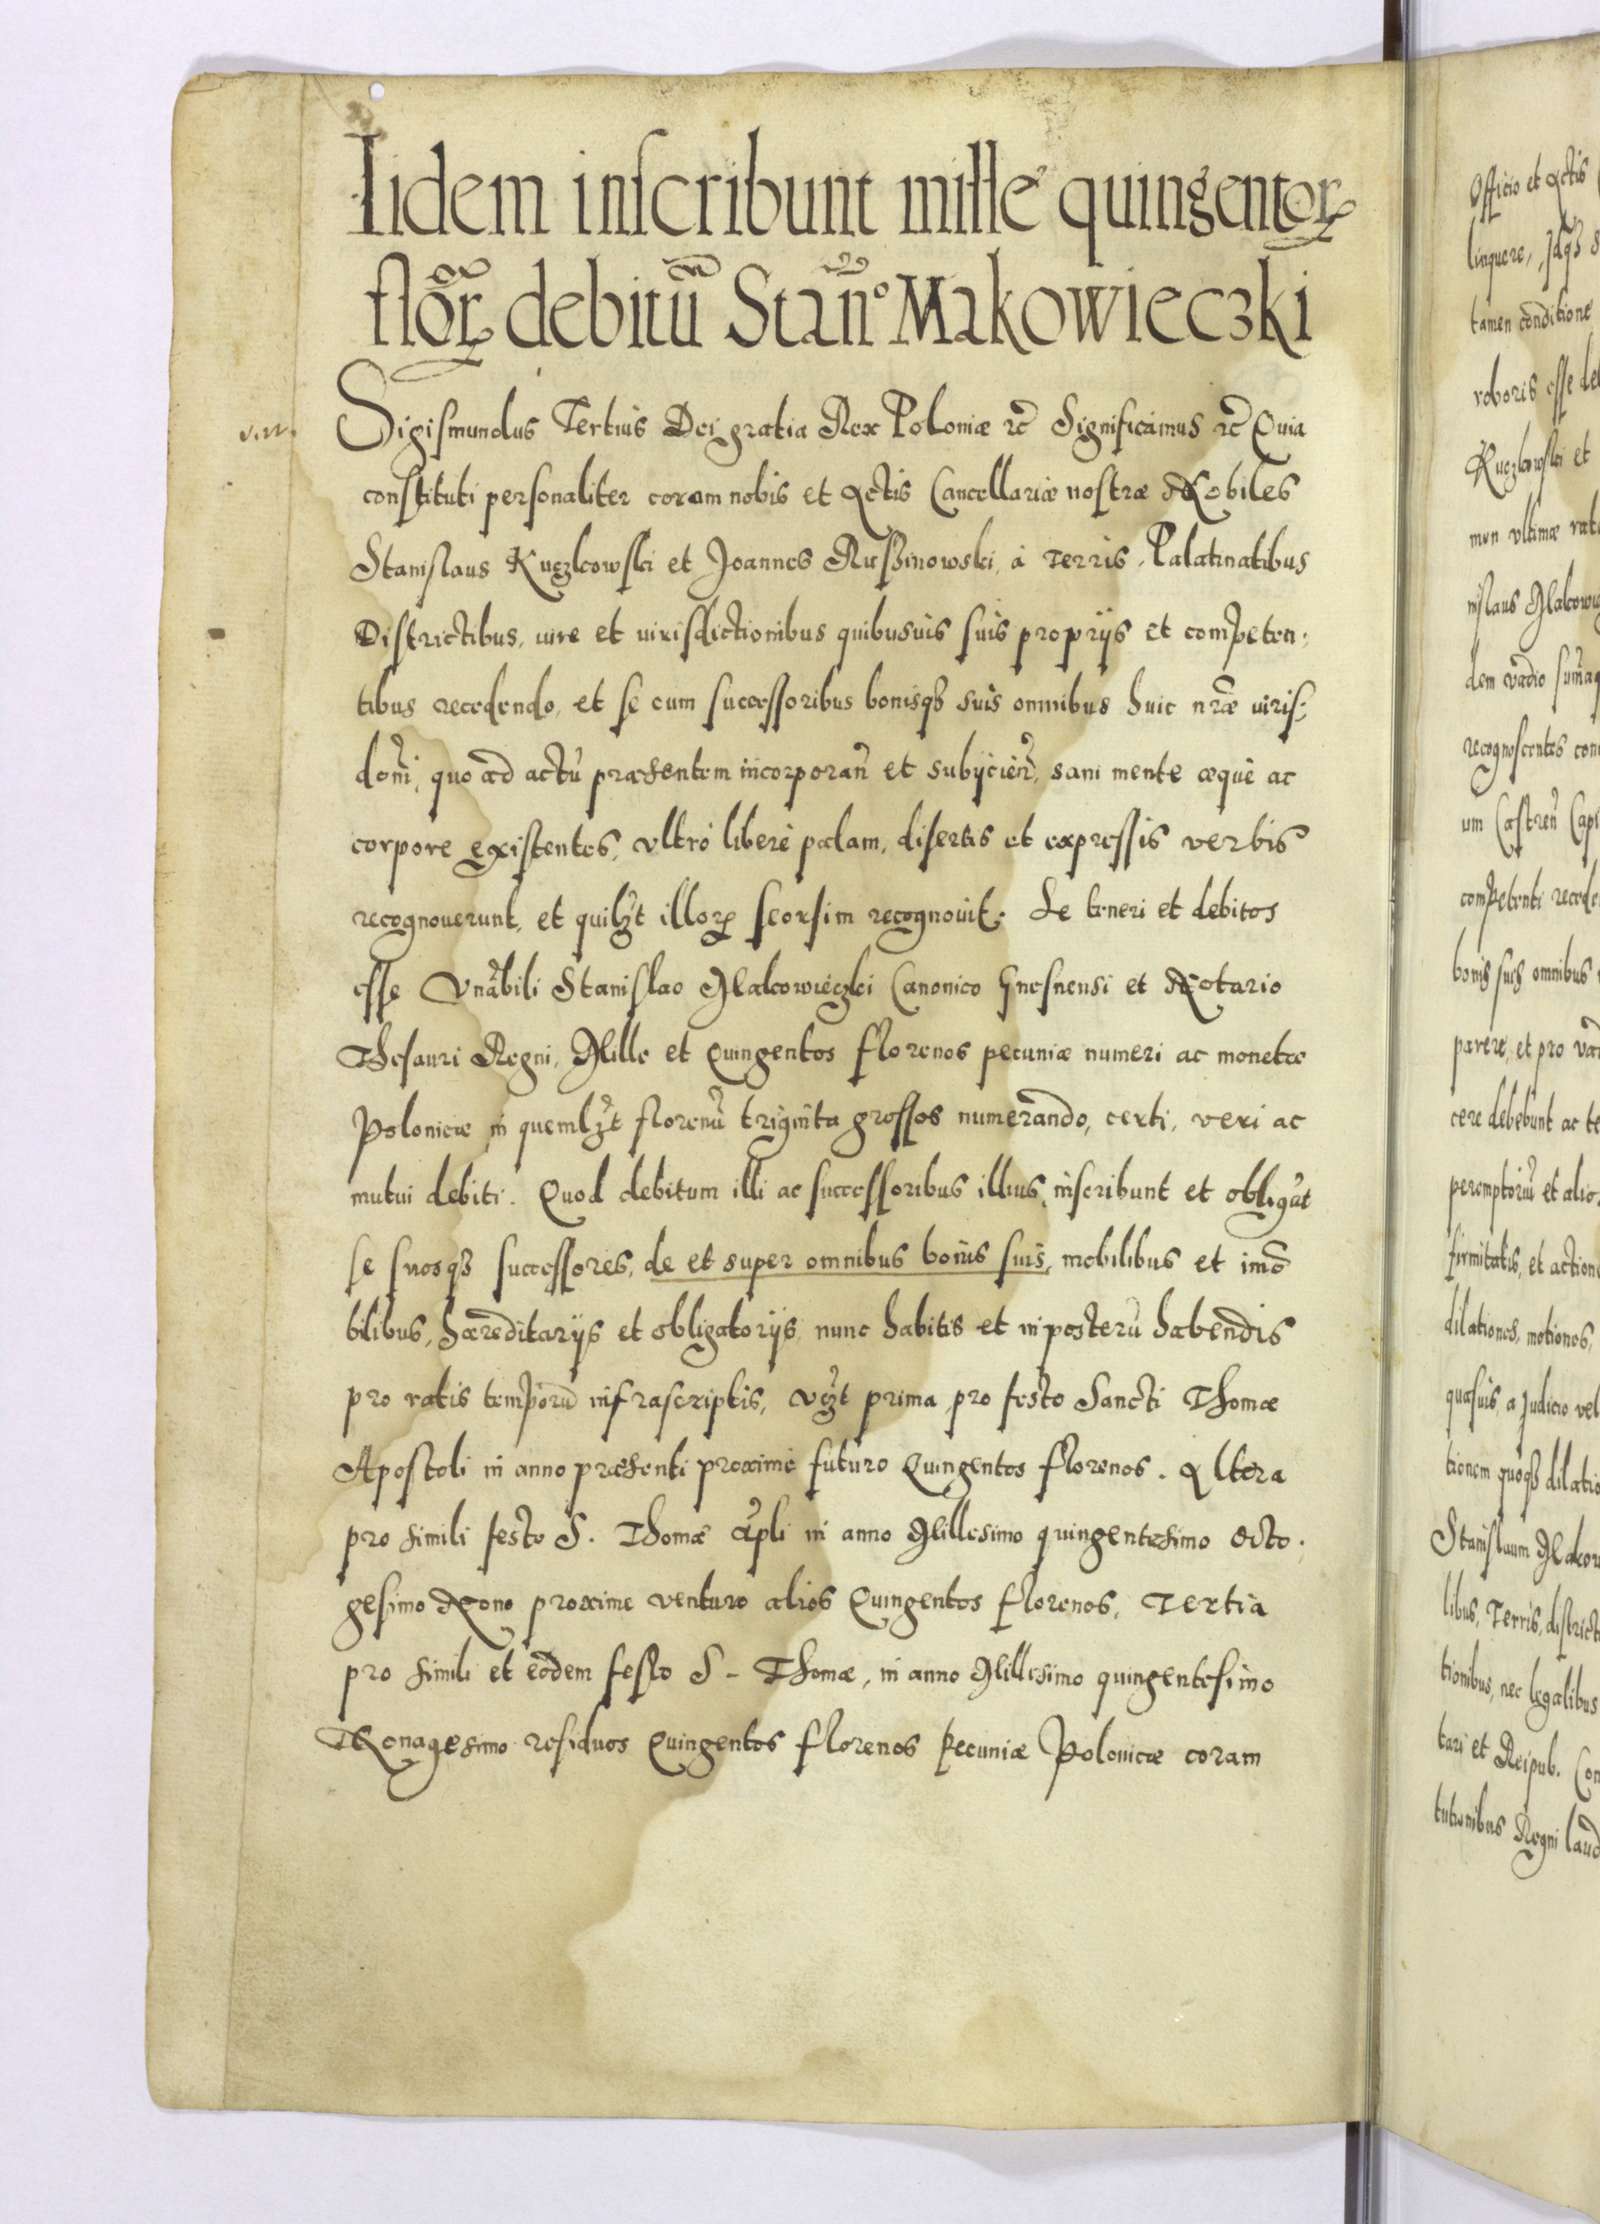 Iidem inscribunt mille quingentor
flor̃ debitũ Staño Makowieczki
v.n.
Sigismundus Tertius Dei gratia Rex Poloniæ etc̃ Significamus etc̃ Quia
constituti personaliter coram nobis et Actis Cancellariæ nostræ Nobiles
Stanislaus Kuczkowski et Joannes Rusßinowski, à terris, Palatinatibus
Districtibus, iure et iurisdictionibus quibusuis suis proprijs et competen-
tibus recedendo, et se cum successoribus bonisqꝫ suis omnibus huic nr̃æ iuris-
doni, quo ad actũ præsentem incorporan̄ et subijcien̄, sani mente æque ac
corpore existentes, vltro libere palam, disertis et expressis verbis
recognouerunt, et quilꝫt illorꝝ seorsim recognouit. Se teneri et debitos
esse Vnãbili Stanislao Makowieczki Canonico Gnesnensi et Notario
Thesauri Regni, Mille et Quingentos florenos pecuniæ numeri ac monetæ
Polonicæ in quemlꝫt florenũ triginta grossos numerando, certi, veri ac
mutui debiti. Quod debitum illi ac successoribus illius, inscribunt et obligãt
se suosqꝫ successores, de et super omnibus bonis suis, mobilibus et imõ
bilibus, hæreditarijs et obligatorijs, nunc habitis et in posterũ habendis
pro ratis temporũ infrascriptis, vꝫt prima pro festo Sancti Thomæ
Apostoli in anno præsenti proxime futuro Quingentos florenos. Altera
pro simili festo S. Thomæ ap̃li in anno Millesimo quingentesimo octo-
gesimo Nono proxime venturo alios Quingentos florenos, Tertia
pro simili et eodem festo S. Thomæ, in anno Millesimo quingentesimo
Nonagesimo residuos Quingentos florenos pecuniæ Polonicæ coram
Officio et Actis
linquere,
tamen conditione
roboris esse de
Kuczkowski et
men vltimæ rat
nislaus Makowi
dem vadio sum̃aq
recognoscentes con
um Castren̄ Cap
competenti recede
bonis suis omnibus
parere, et pro va
cere debebunt ac te
peremptoriũ et alio
firmitatis, et action
dilationes, motiones,
quasuis, a Judicio vel
tionem quoqꝫ dilatio
Stanislaum Makow
libus, Terris, district
tionibus, nec legalibus
tari et Reipub. Con
tutionibus Regni laud